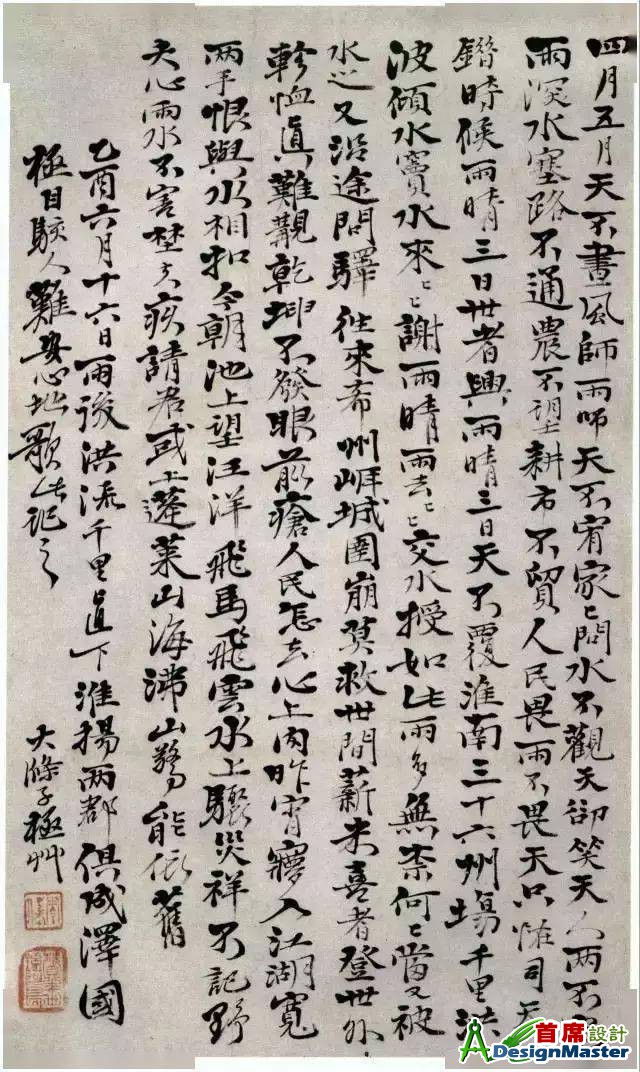 四月五月天不晝風師雨師天不宥家〻問水不觀天卻笑天人兩不
雨深水塞路不通農不望耕市不貿人民畏雨不畏天只 司天
錯時候雨晴三日世者興雨晴三日天不覆淮南三十六州場千里洪
波傾水竇水來〻謝雨晴雨去〻交水授如此雨多無柰何〻當又被
水 又沿途問驛往來希州㟁城圍崩莫救世間薪米喜者登世外
軫恤真難觀乾坤不發眼前瘡人民怎去心上肉昨宵夢入江湖寬
兩手恨與水相扣今朝池上望汪洋飛馬飛雲水上驟災祥不記野
夫心雨水不害埜夫疚請君或上蓬萊山海沸山勢能依舊
乙酉六月十六日雨後洪流千里直下淮揚兩郡俱成澤國
極目駭人難安心地歌此記之
大滌子極艸
首席設計
DesignMaster